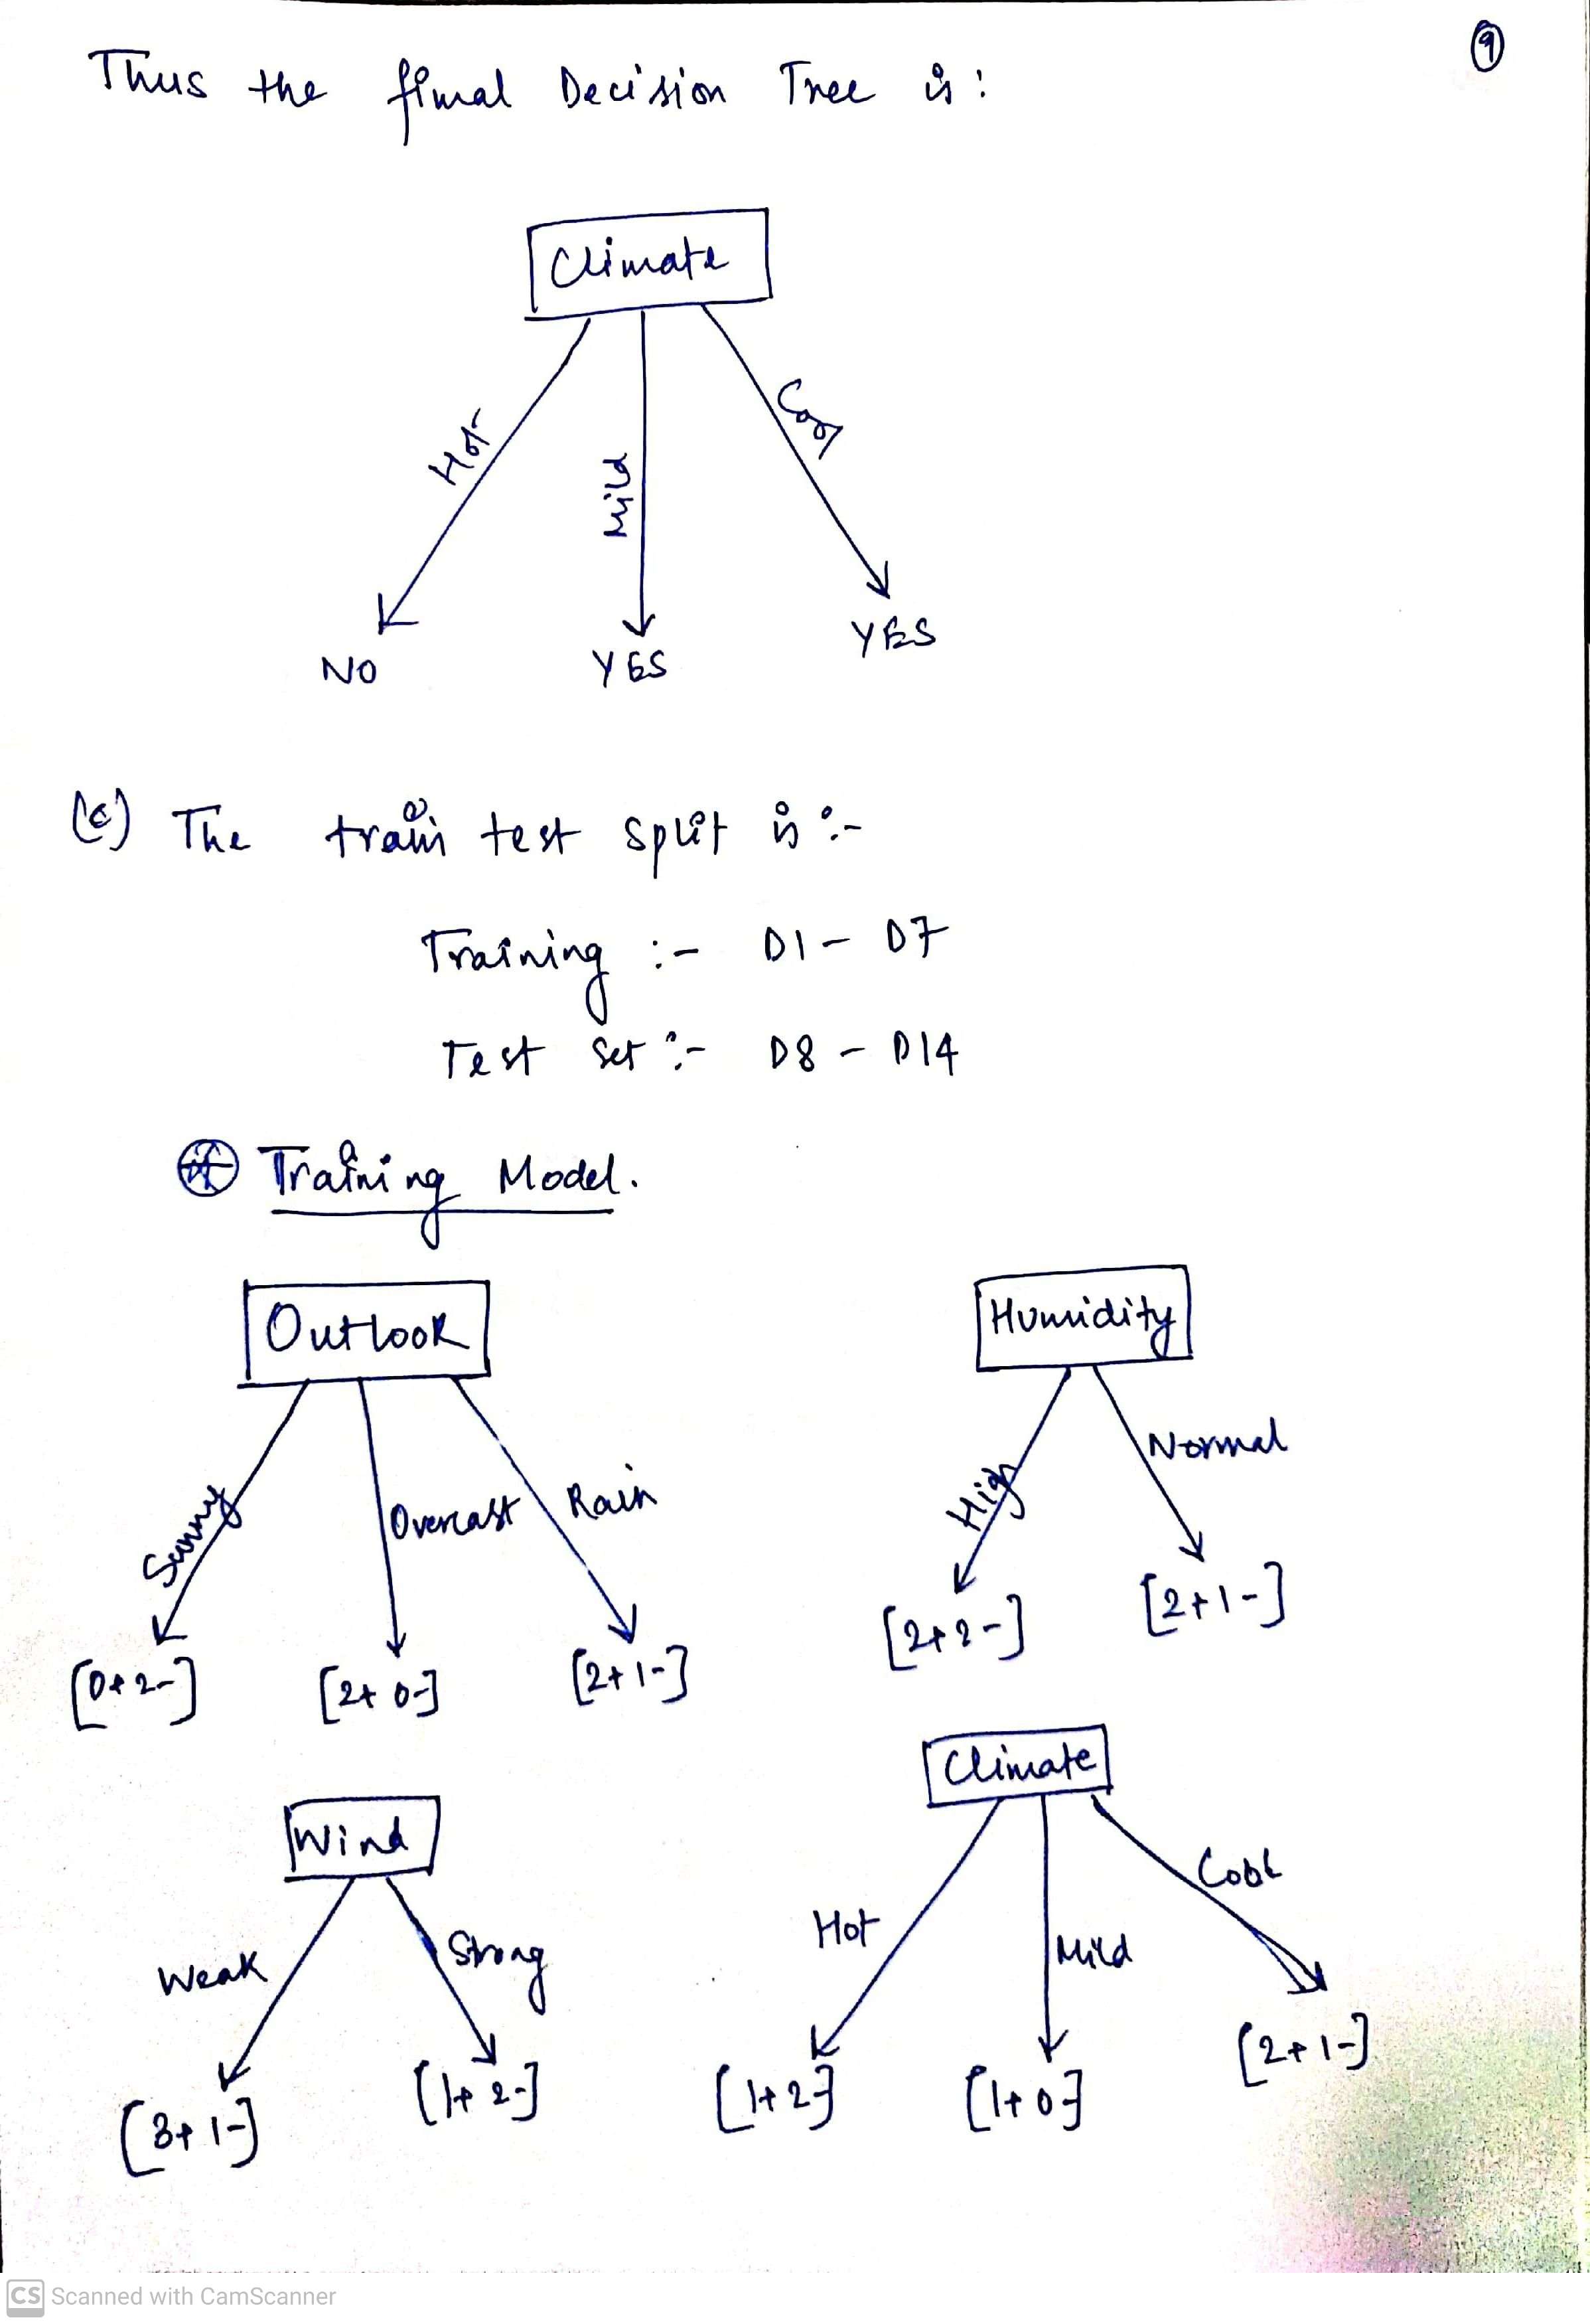 9
Thus the final Decision Tree is :
Climate
Hot
Mild
Cool
NO
YES
YES
(c) The train test split is :-
Training :- D1 - D7
Test set :- D8 - D14
Training Model.
Outlook
Sunny
Overcast
Rain
[0+ 2-]
[2+ 0-]
[2+ 1-]
Humidity
High
Normal
[2+ 2-]
[2+ 1-]
Wind
Weak
Strong
[3+ 1-]
[1+ 2-]
Climate
Hot
Mild
Cool
[1+ 2-]
[1+ 0-]
[2+ 1-]
CS Scanned with CamScanner